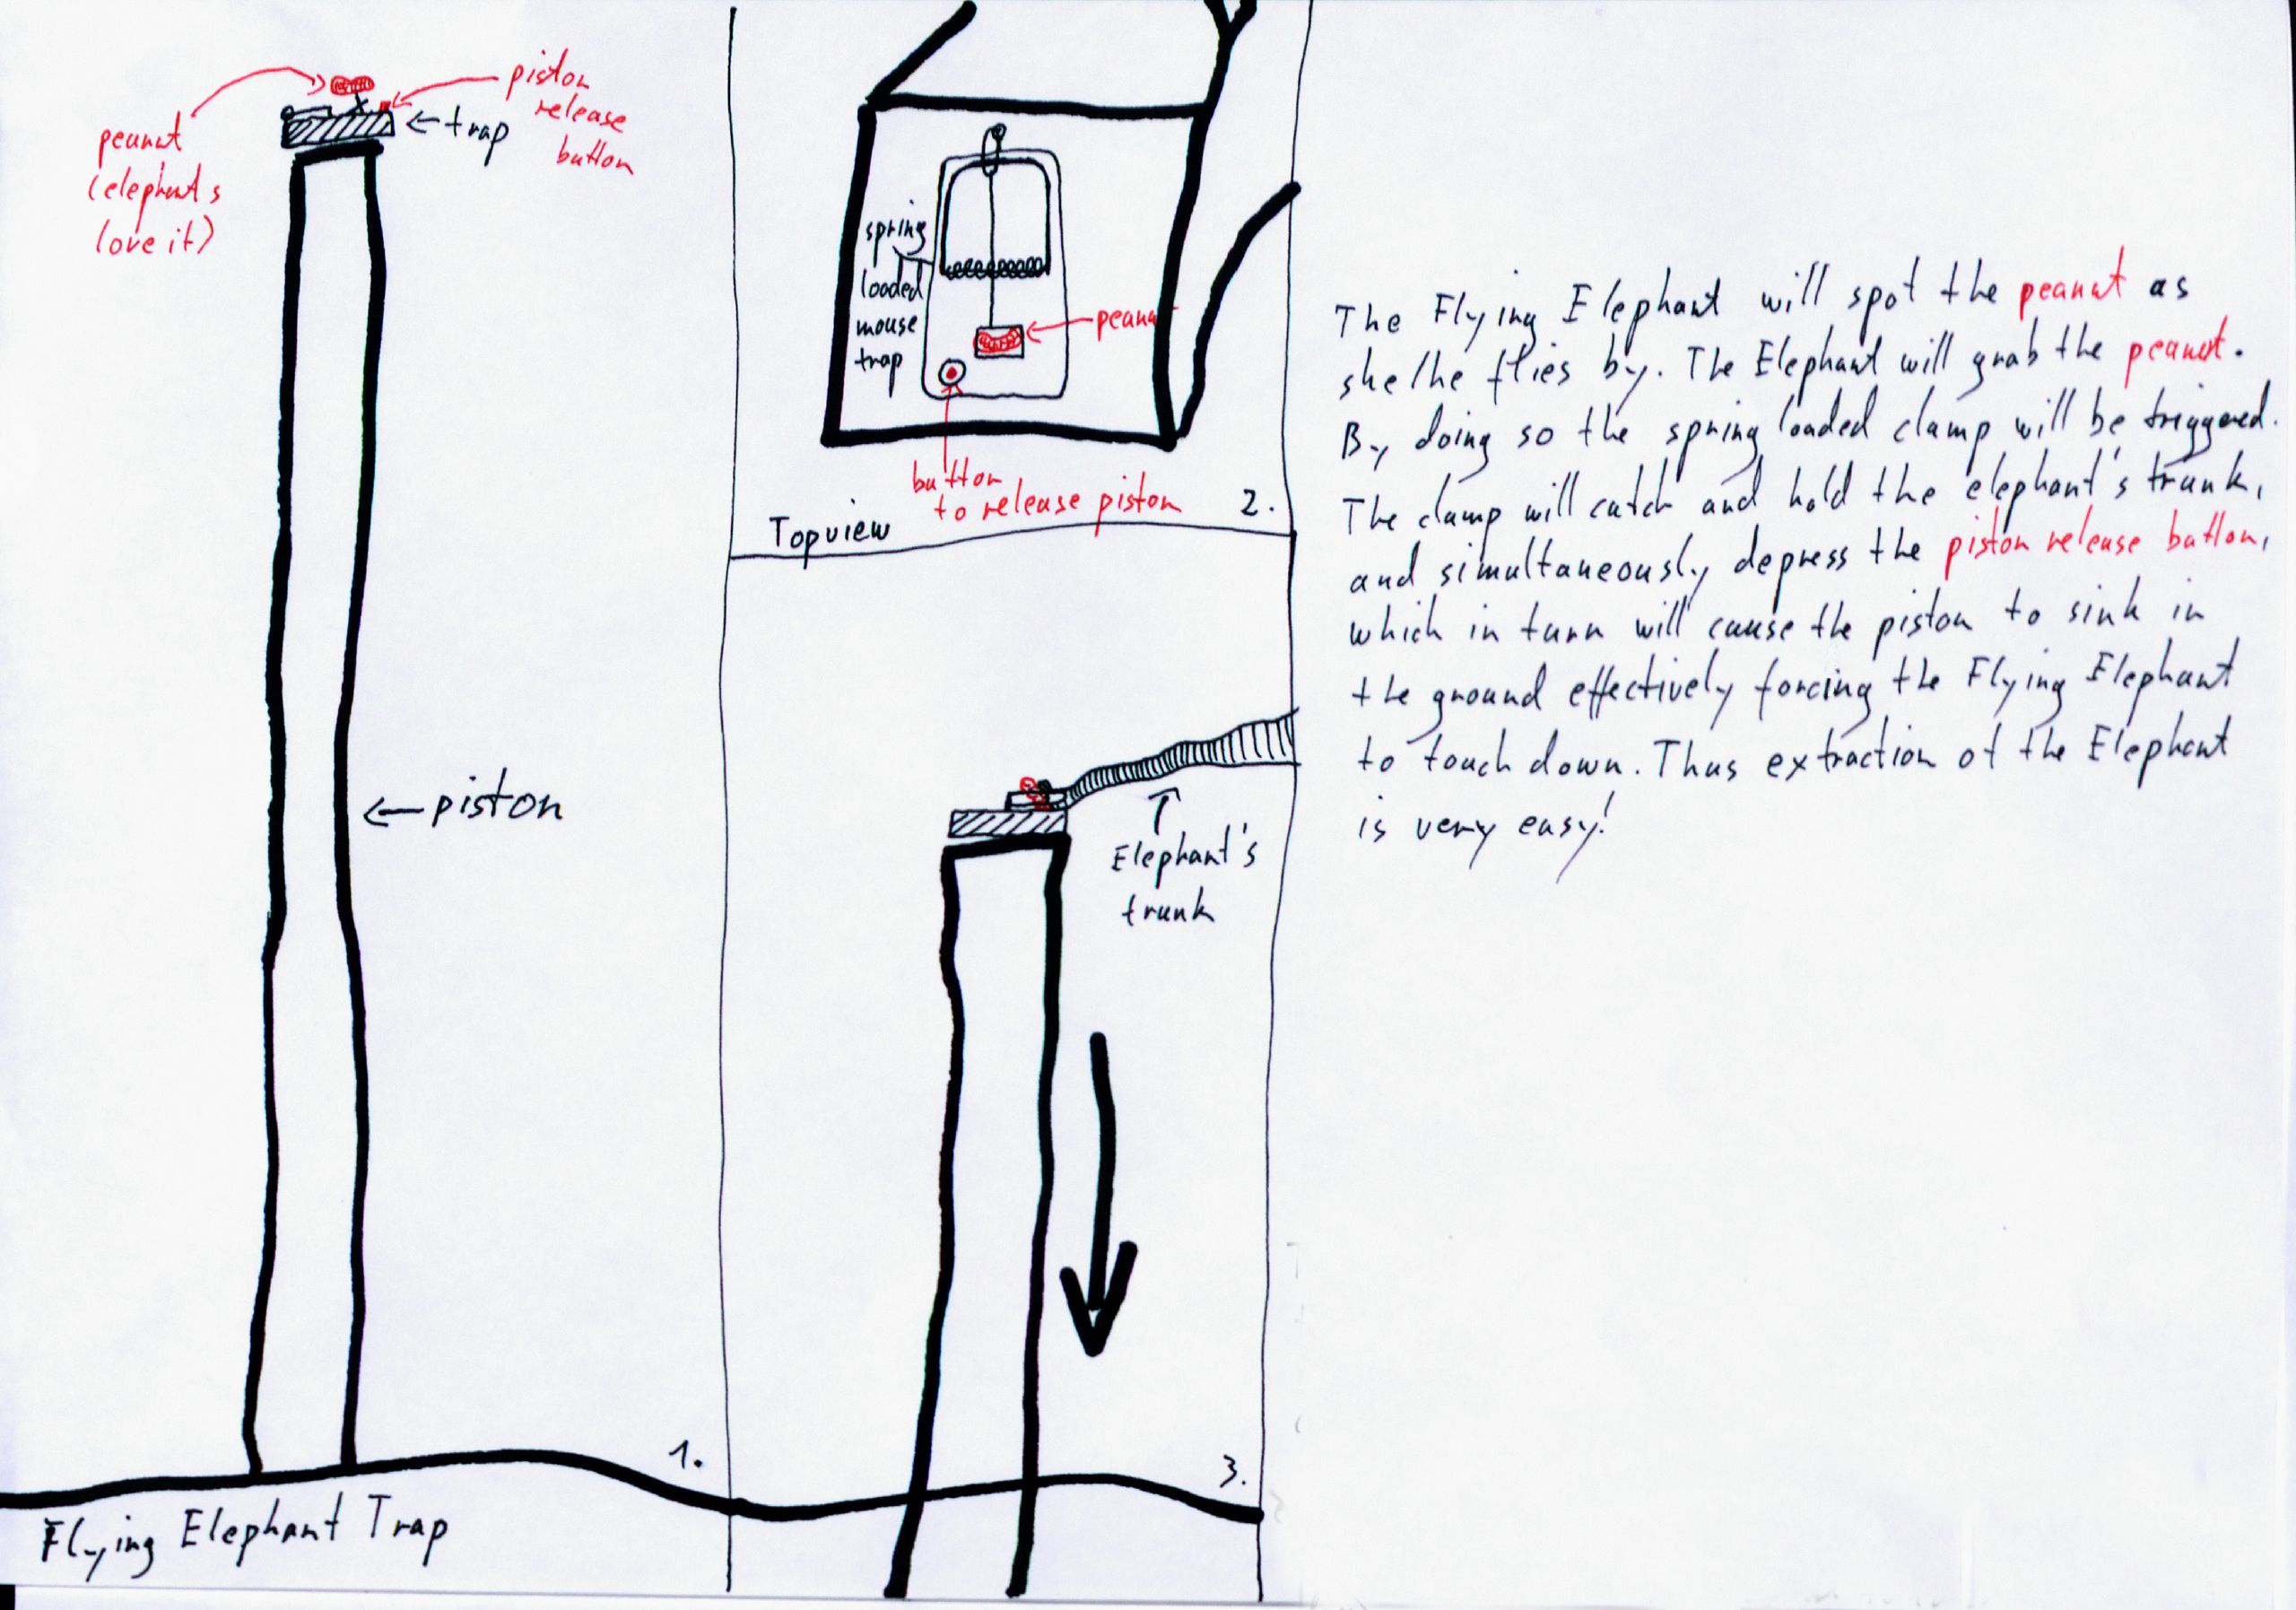 peanut
(elephants
love it)
piston
release
button
← trap
← piston
1.
Flying Elephant Trap
spring
loaded
mouse
trap
peanut
button
to release piston
Topview
2.
Elephant's
trunk
3.
The Flying Elephant will spot the peanut as
she/he flies by. The Elephant will grab the peanut.
By doing so the spring loaded clamp will be triggered.
The clamp will catch and hold the elephant's trunk,
and simultaneously depress the piston release button,
which in turn will cause the piston to sink in
the ground effectively forcing the Flying Elephant
to touch down. Thus extraction of the Elephant
is very easy!